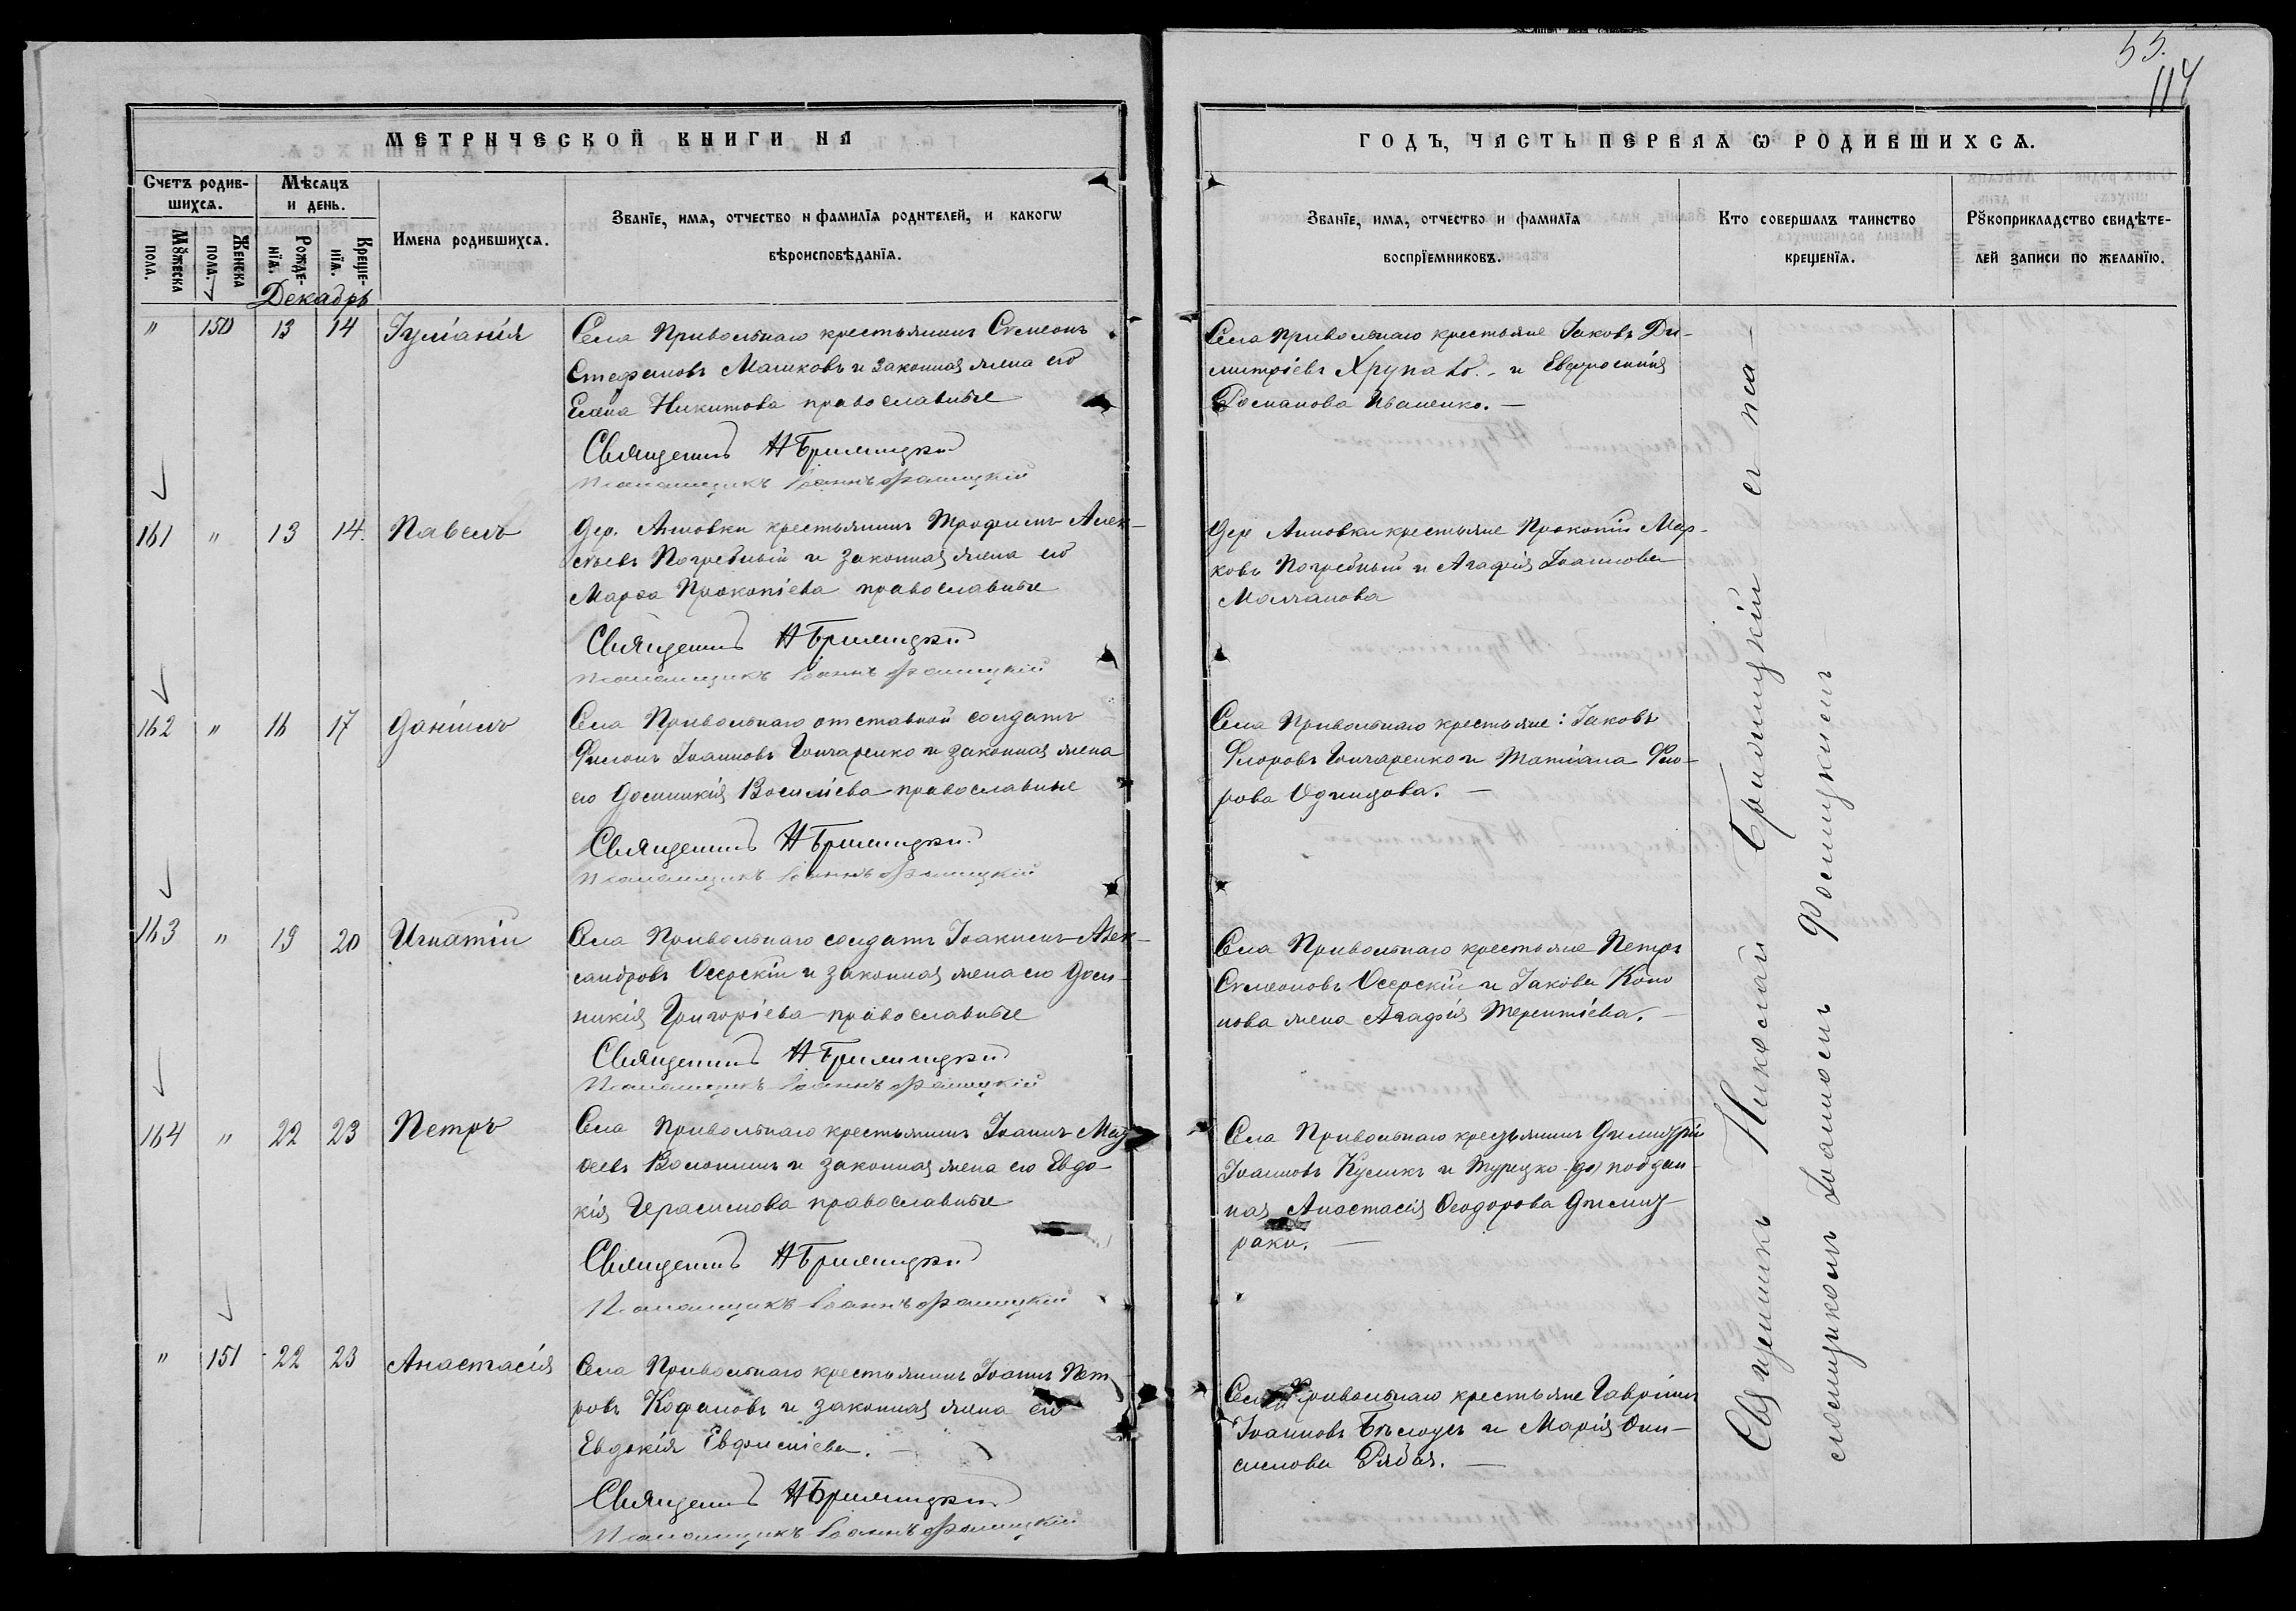 55.
114
МЕТРИЧЕСКОЙ КНИГИ НА
ГОДЪ, ЧАСТЬ ПЕРВАѦ Ѡ РОДИВШИХСѦ.
Счетъ родив-
шихсѧ.
Мѣсѧцъ
и день.
Мꙋжеска
пола.
Женска
пола.
Рожде-
нїѧ.
Креще-
нїѧ.
Имена родившихсѧ.
Званїе, имѧ, отчество и фамилїѧ родителей, и какогѡ
вѣроисповѣданїѧ.
Званїе, имѧ, отчество и фамилїѧ
воспрїемниковъ.
Кто совершалъ таинство
крещенїѧ.
Рꙋкоприкладство свидѣте-
лей записи по желанїю.
Декабрь
" 150 13 14 Іуліанія
Села Привольнаго крестьянинъ Симеонъ
Стефановъ Машковъ и законная жена его
Елена Никитова православные
Священникъ Н Брилицкій
Пономщикъ Іоаннъ Фомицкій
Села Привольнаго крестьяне Іаковъ Ди-
митріевъ Хрупало. - и Евфросинія
Романова Иваненко. —
161 " 13 14. Павелъ
Дер. Анновки крестьянинъ Трофимъ Алек-
сѣевъ Погребный и законная жена его
Марѳа Прокопіева православные
Священникъ Н Брилицкій
Пономщикъ Іоаннъ Фомицкій
Дер Анновки крестьяне Прокопій Мар-
ковъ Погребный и Агафія Іоаннова
Малчанова
162 " 16 17 Даніилъ
Села Привольнаго отставной солдатъ
Филонъ Іоанновъ Гончаренко и законная жена
его Домникія Василіева православные
Священникъ Н Брилицкій
Пономщикъ Іоаннъ Фомицкій
Села Привольнаго крестьяне: Іаковъ
Флоровъ Гончаренко и Татіана Фло-
рова Одинцова. —
163 " 19 20 Игнатій
Села Привольнаго солдатъ Іоакимъ Алек-
сандровъ Осерскій и законная жена его Доми-
никія Григоріева православные
Священникъ Н Брилицкій
Пономщикъ Іоаннъ Фомицкій
Села Привольнаго крестьяне Петръ
Симеоновъ Осерскій и Іакова Коно
нова жена Агафія Терентіева. —
164 " 22 23 Петръ
Села Привольнаго крестьянинъ Іоаннъ Мат
ѳеевъ Волошинъ и законная жена его Евдо-
кія Герасимова православные
Священникъ Н Брилицкій
Пономщикъ Іоаннъ Фомицкій
Села Привольнаго крестьянинъ Димитрій
Іоанновъ Куликъ и Турецко-поддан-
ная Анастасія Ѳеодорова Димит
раки. —
" 151 22 23 Анастасія
Села Привольнаго крестьянинъ Іоаннъ Пет
ровъ Кофановъ и законная жена его
Евдокія Евфиміева. —
Священникъ Н Брилицкій
Пономщикъ Іоаннъ Фомицкій
Села Привольнаго крестьяне Гавріилъ
Іоанновъ Бѣлоусъ и Марія Они-
симова Рябая. —
Священникъ Николай Брилицкій съ по-
номщикомъ Іоанномъ Фомицкимъ